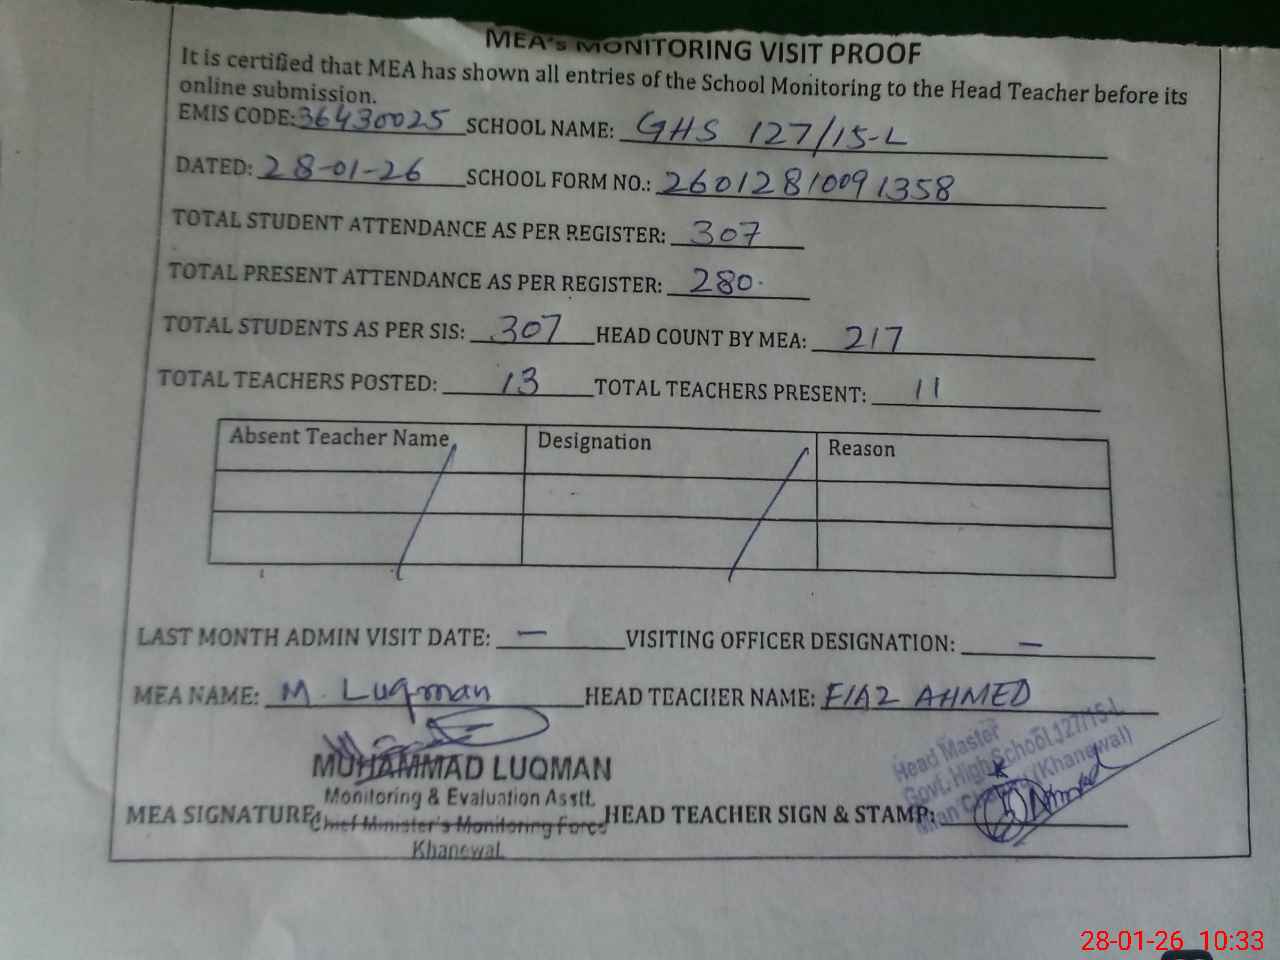 MEA's MONITORING VISIT PROOF
It is certified that MEA has shown all entries of the School Monitoring to the Head Teacher before its
online submission.
EMIS CODE: 36430025 SCHOOL NAME: GHS 127/15-L
DATED: 28-01-26 SCHOOL FORM NO.: 26012810091358
TOTAL STUDENT ATTENDANCE AS PER REGISTER: 307
TOTAL PRESENT ATTENDANCE AS PER REGISTER: 280.
TOTAL STUDENTS AS PER SIS: 307 HEAD COUNT BY MEA: 217
TOTAL TEACHERS POSTED: 13 TOTAL TEACHERS PRESENT: 11
Absent Teacher Name Designation Reason
LAST MONTH ADMIN VISIT DATE: — VISITING OFFICER DESIGNATION: —
MEA NAME: M. Luqman HEAD TEACHER NAME: FIAZ AHMED
Head Master
Govt. High School 127/15-L
Mian (Khanewal)
MUHAMMAD LUQMAN
Monitoring & Evaluation Asstt.
MEA SIGNATURE: Chief Minister's Monitoring Force HEAD TEACHER SIGN & STAMP:
Khanewal
28-01-26 10:33